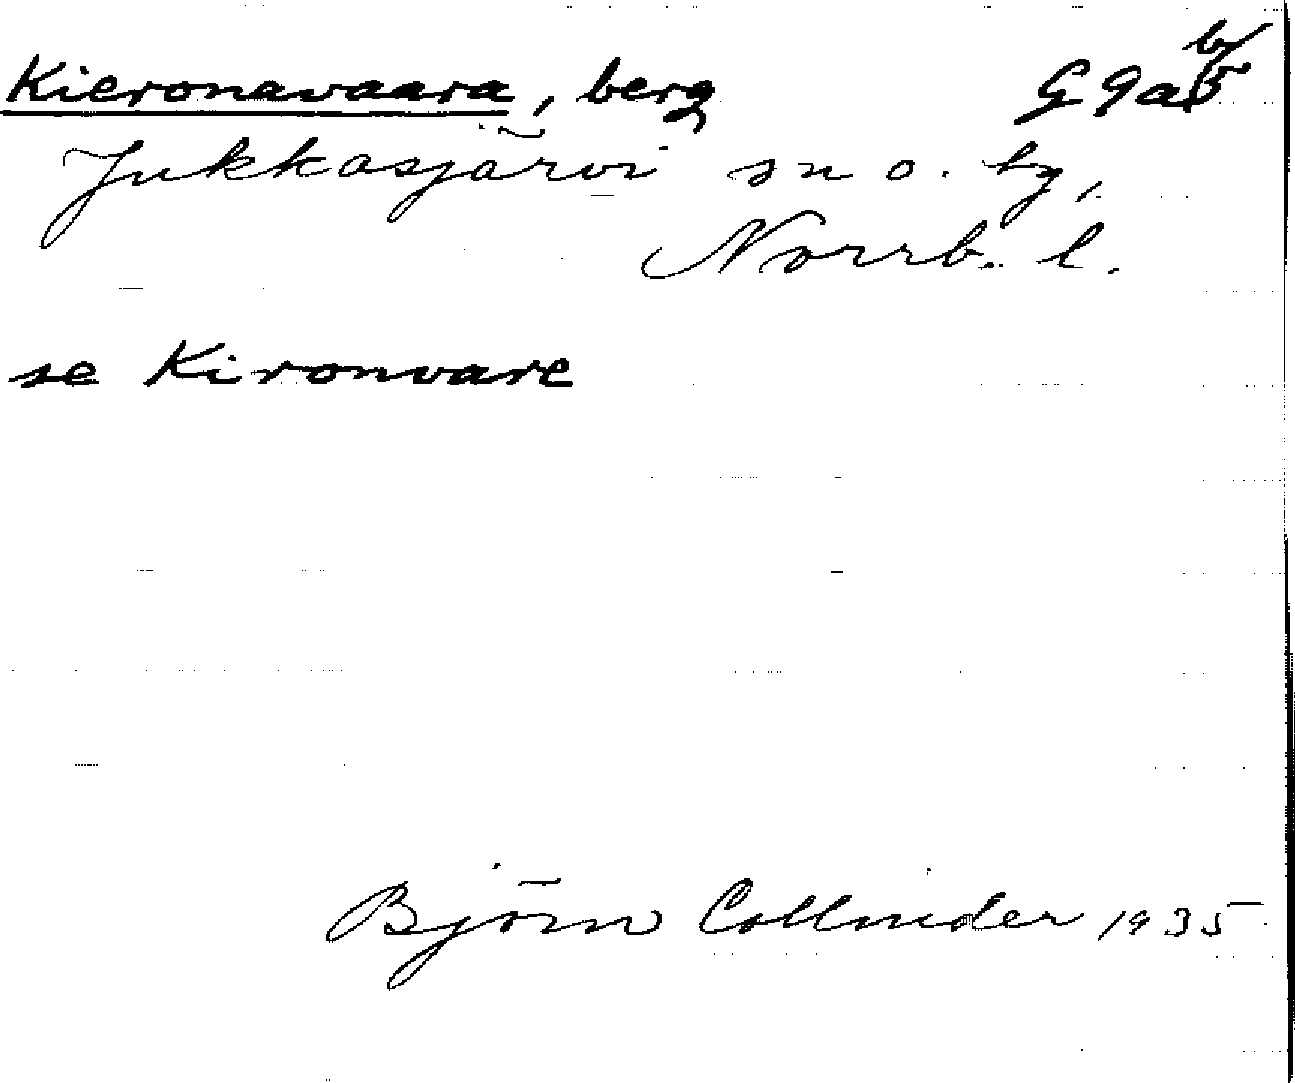 Kieronavaara, berg G9a b/
Jukkasjärvi sn o. by,
Norrb. l.
se Kironvare
Björn Collinder 1935